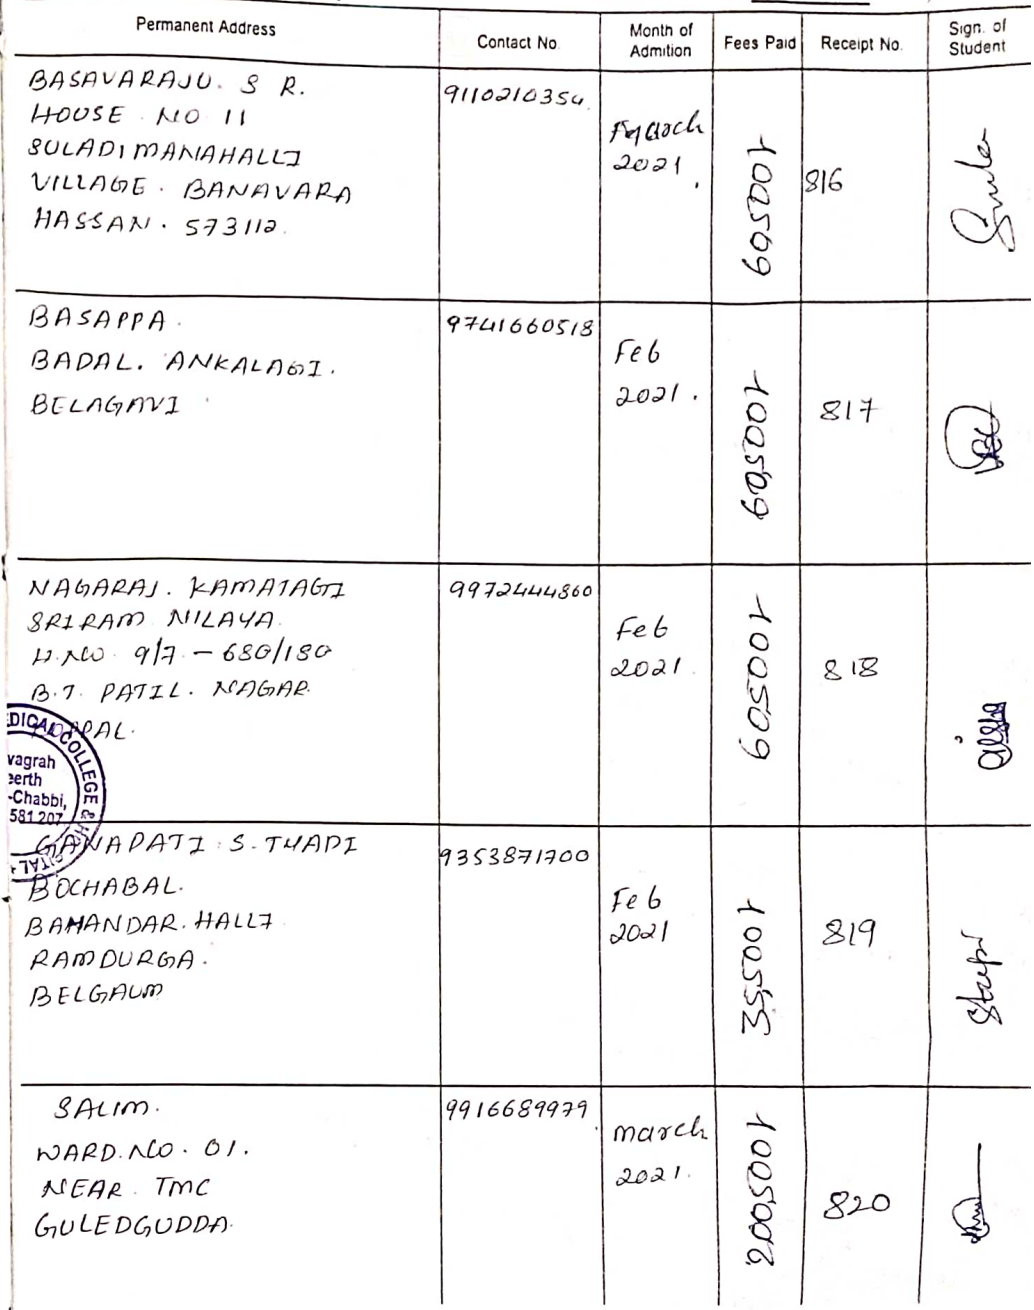 Permanent Address
Contact No.
Month of
Admition
Fees Paid
Receipt No.
Sign. of
Student
BASAVARAJU. S R.
HOUSE NO 11
SULADIMANAHALLI
VILLAGE. BANAVARA
HASSAN. 573112.
9110210354
2021.
60,500/-
816
BASAPPA.
BADAL. ANKALAGI.
BELAGAVI
9741660518
Feb
2021.
60,500/-
817
NAGARAJ. KAMATAGI
SRIRAM NILAYA
H.NO 9/7 - 680/180
B.T. PATIL. NAGAR.
9972444860
Feb
2021.
60,500/-
818
EDICAL COLLEGE &
vagrah
eerth
-Chabbi,
581 207
GANAPATI S. THADI
BOCHABAL.
BAHANDAR. HALLI
RAMDURGA.
BELGAUM
9353871700
Feb
2021
35,500/-
819
SALIM.
WARD. NO. 01.
NEAR TMC
GULEDGUDDA.
9916689979
march
2021.
200,500/-
820